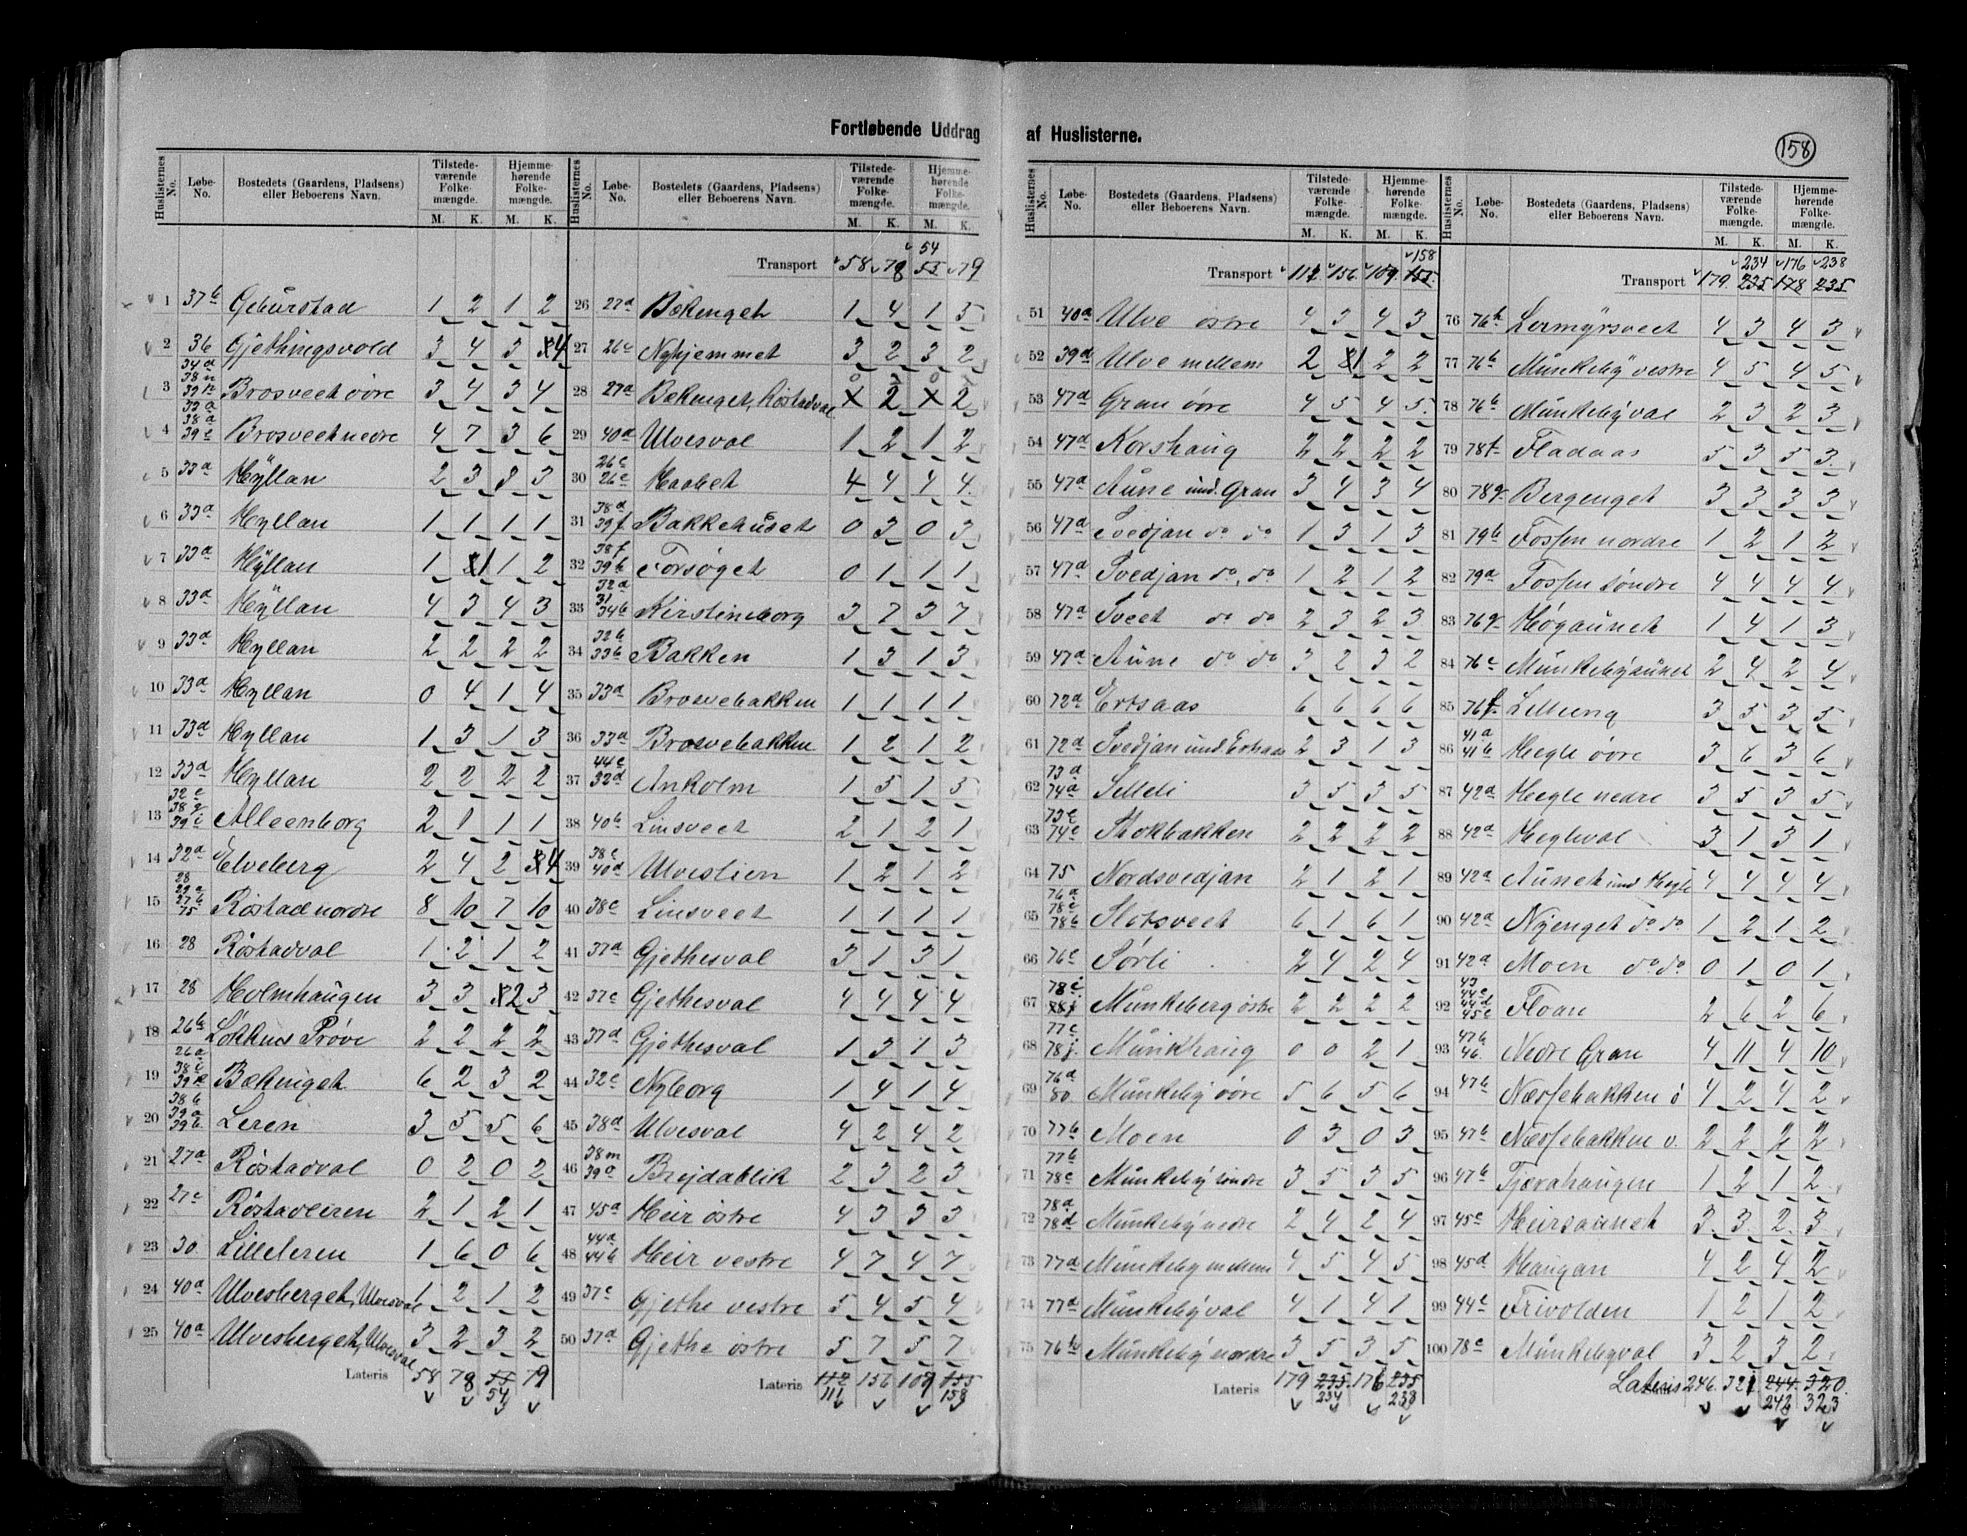 Fortløbende Uddrag af Huslisterne.
158
Huslisternes No. Løbe-No. Bostedets (Gaardens, Pladsens) eller Beboerens Navn. Tilstedeværende Folkemængde. M. K. Hjemmehørende Folkemængde. M. K.
1 37b Geburstad 1 2 1 2
2 36 Gjethingsvold 3 4 3 4
3 Brosveet øvre 3 4 3 4
4 Brosveet nedre 4 7 3 6
5 33a Hÿllan 2 3 3 3
6 33a Hyllan 1 1 1 1
7 33a Hÿllan 1 1 1 2
8 33a Hÿllan 4 3 4 3
9 33a Hyllan 2 2 2 2
10 33a Hyllan 0 4 1 4
11 33a Hyllan 1 3 1 3
12 33a Hyllan 2 2 2 2
13 Alleenborg 2 1 1 1
14 32a Elveberg 2 4 2 4
15 Røstad nordre 8 10 7 10
16 28 Røstadval 1 2 1 2
17 28 Holmhaugen 3 3 2 3
18 26b Løkkens Prøve 2 2 2 2
19 Bækenget 6 2 3 2
20 38b 39a 39b Leren 3 5 5 6
21 27a Røstadval 0 2 0 2
22 27c Røstadleiren 2 1 2 1
23 30. Lilleleren 1 6 0 6
24 40a Ulvesberget, Ulvesval 1 2 1 2
25 40a Ulvesberget, Ulvesval 3 2 3 2
Lateris 58 78 55 79
54
Huslisternes No. Løbe-No. Bostedets (Gaardens, Pladsens) eller Beboerens Navn. Tilstedeværende Folkemængde. M. K. Hjemmehørende Folkemængde. M. K.
54
Transport 58 78 55 79
26 27a Bækenget 1 4 1 5
27 26c Nyhjemmet 3 2 3 2
28 27a Bækenget, Røstadval x 2 x 2
29 40a Ulvesval 1 2 1 2
30 26c 26e Haabet 4 4 4 4
31 38d 39f Bakkehuset 0 3 0 3
32 38f 39b Forsøget 0 1 1 1
33 32a 31 34b Kirstineborg 3 7 3 7
34 32b 33b Bakken 1 3 1 3
35 33a Brosvebakken 1 1 1 1
36 33a Brosvebakken 1 2 1 2
37 44c 32d Ankolm 1 5 1 5
38 40b Linsveet 2 1 2 1
39 38c 40d Ulvestien 1 2 1 2
40 38c Linsveet 1 1 1 1
41 37a Gjethesval 3 1 3 1
42 37c Gjethesval 4 4 4 4
43 37a Gjethesval 1 3 1 3
44 32c Nyborg 1 4 1 4
45 38a Ulvesval 4 2 4 2
46 38m 39a Brejdablik 2 3 2 3
47 45a Heir østre 4 3 3 3
48 44a 44b Heir vestre 4 7 4 7
49 37c Gjethe vestre 5 4 5 4
50 37a Gjethe østre 5 7 5 7
Lateris 112 156 109 155
111 158
Huslisternes No. Løbe-No. Bostedets (Gaardens, Pladsens) eller Beboerens Navn. Tilstedeværende Folkemængde. M. K. Hjemmehørende Folkemængde. M. K.
158
Transport 111 156 109 155
51 40a Ulve østre 4 3 4 3
52 39d Ulve mellem 2 1 2 2
53 47a Gran øvre 4 5 4 5
54 47a Korshaug 2 2 2 2
55 47a Aune und. Gran 3 4 3 4
56 47a Svedjan do do 1 3 1 3
57 47a Svedjan do, do 1 2 1 2
58 47a Sveet do do 2 3 2 3
59 47a Aune do do 3 2 3 2
60 72a Ertsaas 6 6 6 6
61 72a Svedjan und. Ertsaas 2 3 1 3
62 73a 74a Selleli 3 5 3 5
63 73c 74c Stokbakken 2 2 2 2
64 75 Nordsvedjan 2 1 2 1
65 76a 78c 78b Slotsveet 6 1 6 1
66 76c Sørli 2 4 2 4
67 78i Munkeberg østre 2 2 2 2
68 77c 78j. Munkhaug 0 0 2 1
69 76a 80. Munkeby øvre 5 6 5 6
70 77b Moen 0 3 0 3
71 77b 78c Munkeby søndre 3 5 3 5
72 78a 78d Munkeby nedre 2 4 2 4
73 77a Munkeby mellem 4 5 4 5
74 77a Munkebyval 4 1 4 1
75 76b Munkeby nordre 3 5 3 5
Lateris 179 235 176 235
234 238
Huslisternes No. Løbe-No. Bostedets (Gaardens, Pladsens) eller Beboerens Navn. Tilstedeværende Folkemængde. M. K. Hjemmehørende Folkemængde. M. K.
234 176 238
Transport 179 235 178 235
76 76h Lermyrsveet 4 3 4 3
77 76b Munkeby vestre 4 5 4 5
78 76b Munkebyval 2 3 2 3
79 78f Fladaas 5 3 5 3
80 78g Bergenget 3 3 3 3
81 79b Fossen nordre 1 2 1 2
82 79a Fossen søndre 4 4 4 4
83 76g Høgaunet 1 4 1 3
84 76e Munkebyaunet 2 4 2 4
85 76f Lillung 3 5 3 5
86 41a 41b Hegle øvre 3 6 3 6
87 42a Hegle nedre 3 5 3 5
88 42a Hegleval 3 1 3 1
89 42a Aunet und Hegle 4 4 4 4
90 42a Nyenget do do 1 2 1 2
91 42a Moen do do 0 1 0 1
92 43 44c 44d 45c Floan 2 6 2 6
93 47b 46. Nedre Gran 4 11 4 10
94 47b Næssebakken ø 4 2 4 2
95 47b Næssebakken v. 2 2 2 2
96 47b Tjærahaugen 1 2 1 2
97 45c Heirsaunet 3 3 2 3
98 45d Haugan 4 2 4 2
99 44c Frivolden 1 2 1 2
100 78c Munkebyval 3 2 3 2
Lateris 246. 321 244. 320.
242 323